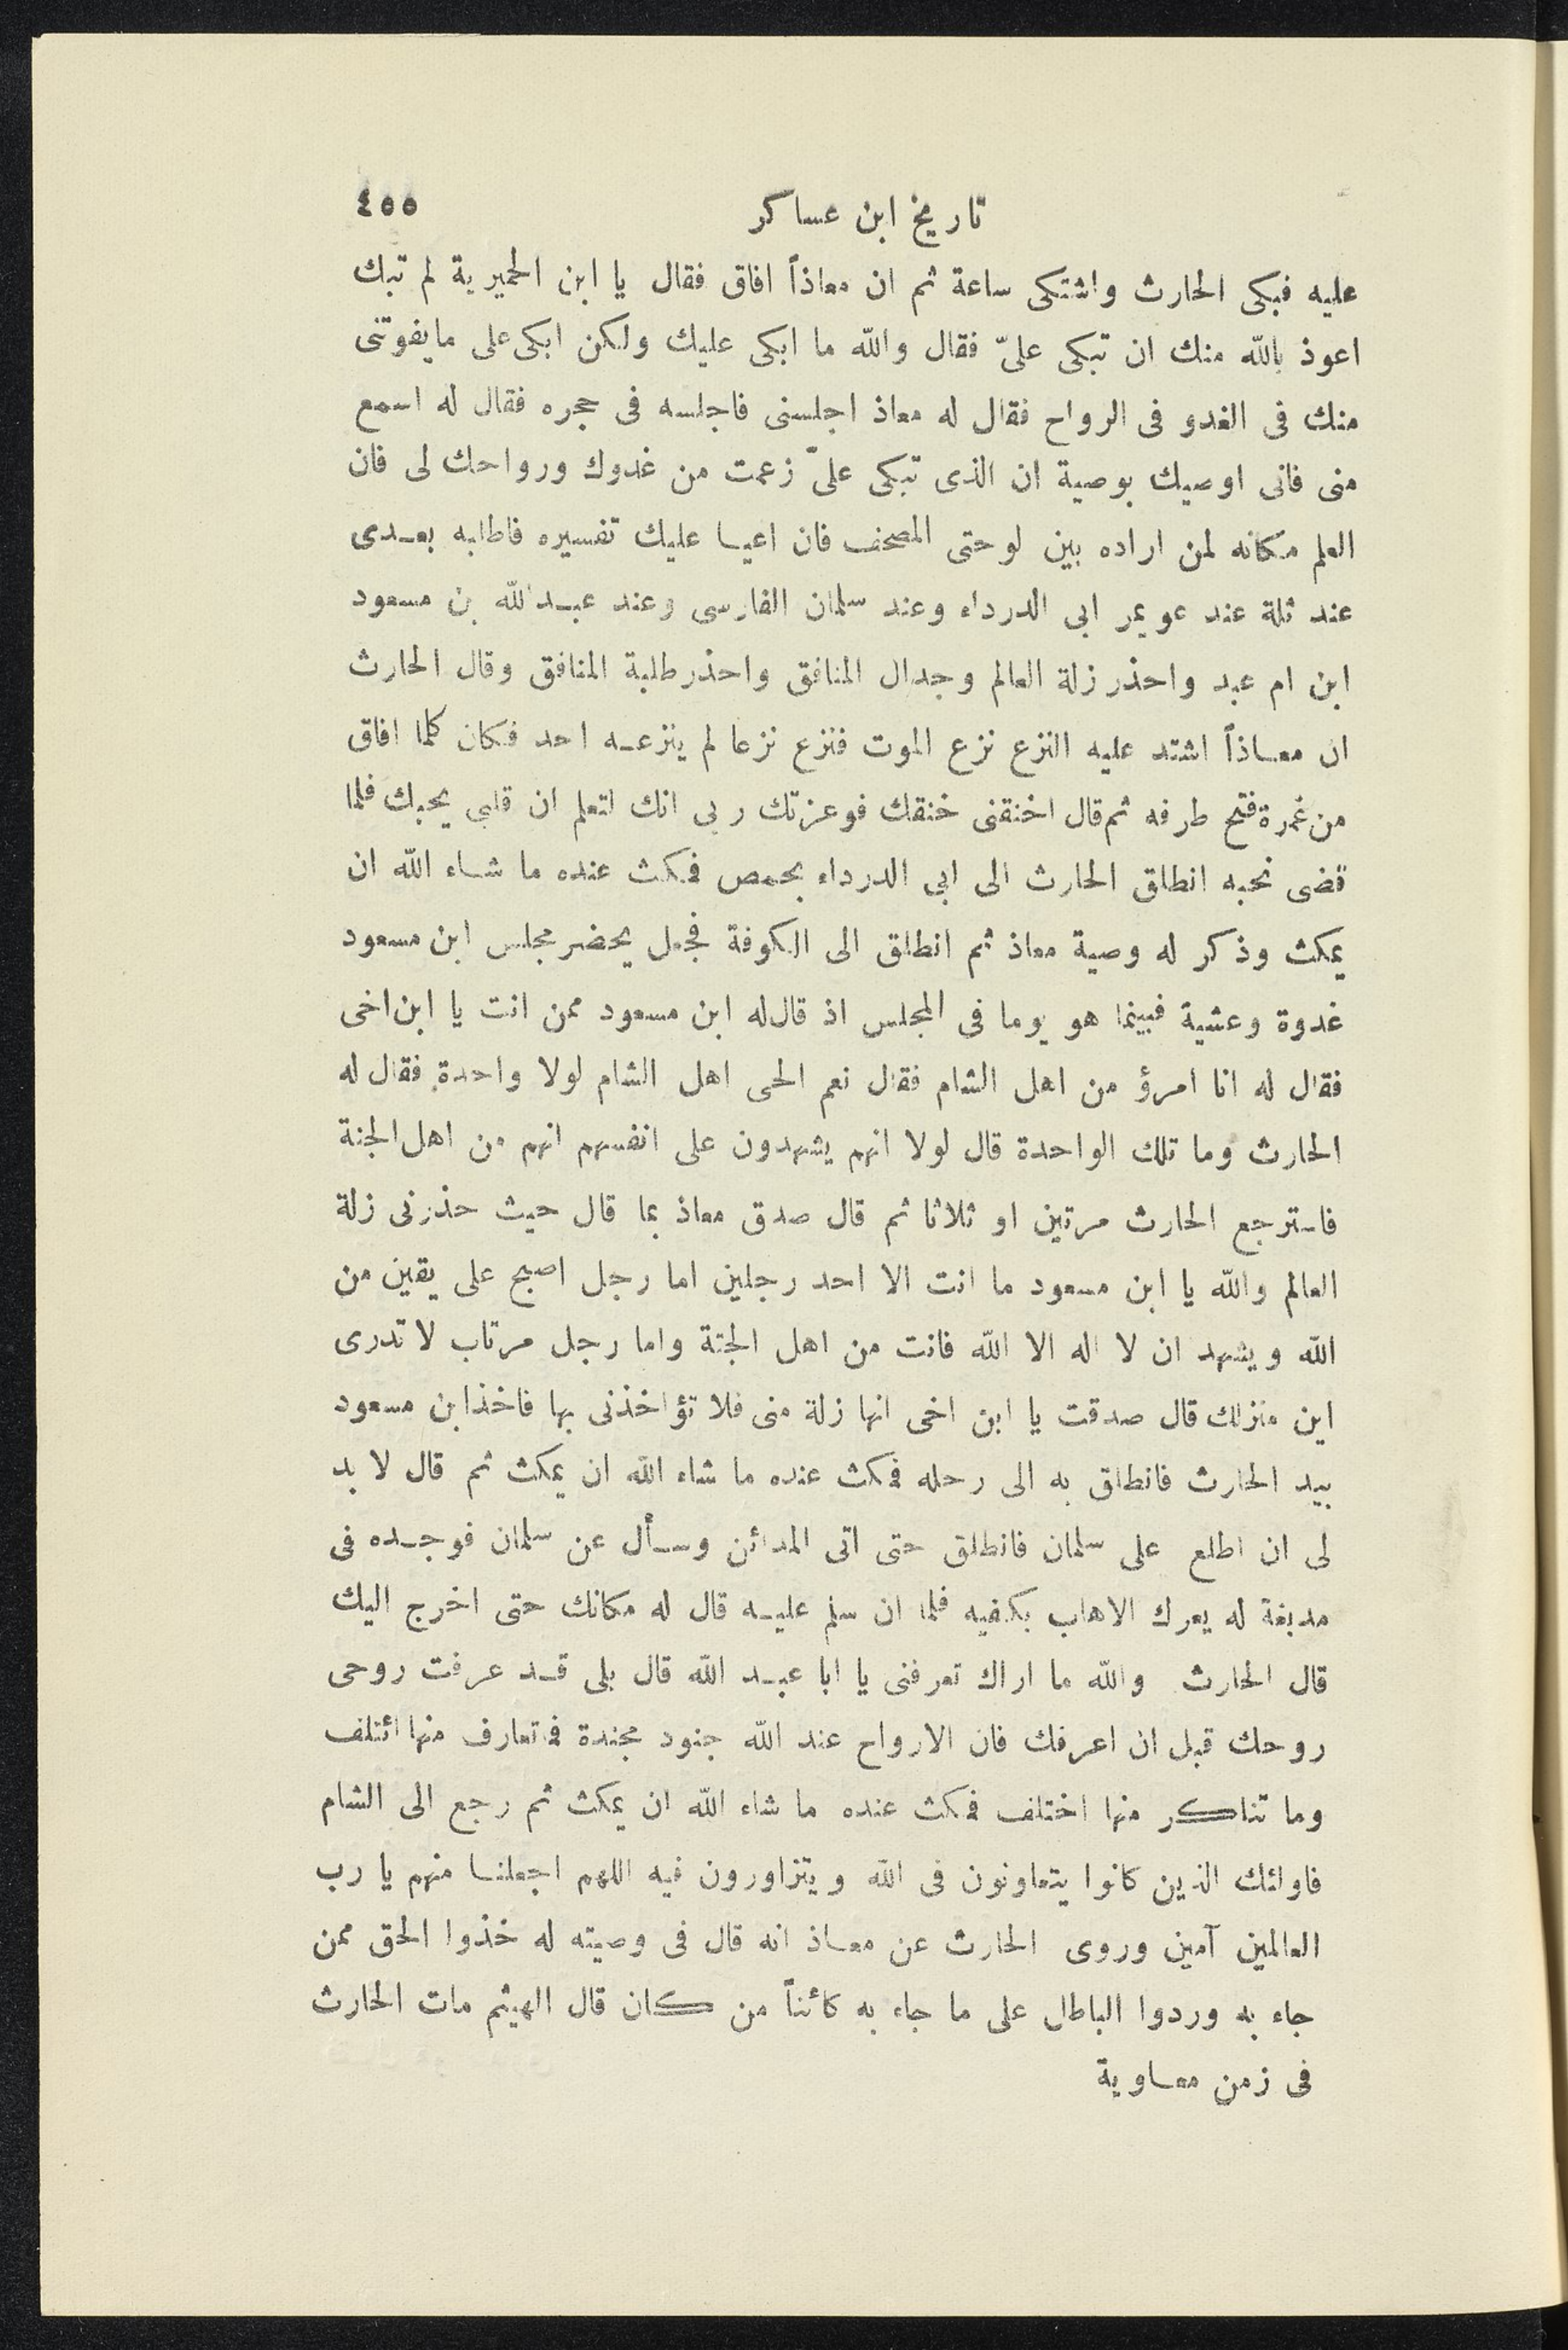 تاريخ ابن عساكر ٤٥٥
عليه فبكى الحارث واشتكى ساعة ثم ان معاذاً افاق فقال يا ابن الحميرية لم تبك
اعوذ بالله منك ان تبكى علىّ فقال والله ما ابكى عليك ولكن ابكى على ما يفوتنى
منك فى الغدو فى الرواح فقال له معاذ اجلسنى فاجلسه فى حجره فقال له اسمع
منى فانى اوصيك بوصية ان الذى تبكى علىّ زعمت من غدوك ورواحك لى فان
العلم مكانه لمن اراده بين لوحتى المصحف فان اعيا عليك تفسيره فاطلبه بعدى
عند ثلة عند عويمر ابى الدرداء وعند سلمان الفارسى وعند عبدالله بن مسعود
ابن ام عبد واحذر زلة العالم وجدال المنافق واحذر طلبة المنافق وقال الحارث
ان معاذاً اشتد عليه النزع نزع الموت فنزع نزعا لم ينزعه احد فكان كلما افاق
من غمرة فتح طرفه ثم قال اخنقنى خنقك فوعزتك ربى انك لتعلم ان قلبى يحبك فلما
قضى نحبه انطلق الحارث الى ابى الدرداء بحمص فمكث عنده ما شاء الله ان
يمكث وذكر له وصية معاذ ثم انطلق الى الكوفة فجعل يحضر مجلس ابن مسعود
غدوة وعشية فبينما هو يوما فى المجلس اذ قال له ابن مسعود ممن انت يا ابن اخى
فقال له انا امرؤ من اهل الشام فقال نعم الحى اهل الشام لولا واحدة فقال له
الحارث وما تلك الواحدة قال لولا انهم يشهدون على انفسهم انهم من اهل الجنة
فاسترجع الحارث مرتين او ثلاثا ثم قال صدق معاذ بما قال حيث حذرنى زلة
العالم والله يا ابن مسعود ما انت الا احد رجلين اما رجل اصبح على يقين من
الله ويشهد ان لا اله الا الله فانت من اهل الجنة واما رجل مرتاب لا تدرى
اين منزلك قال صدقت يا ابن اخى انها زلة منى فلا تؤاخذنى بها فاخذ ابن مسعود
بيد الحارث فانطلق به الى رحله فمكث عنده ما شاء الله ان يمكث ثم قال لا بد
لى ان اطلع على سلمان فانطلق حتى اتى المدائن وسأل عن سلمان فوجده فى
مدبغة له يعرك الاهاب بكفيه فلما ان سلم عليه قال له مكانك حتى اخرج اليك
قال الحارث والله ما اراك تعرفنى يا ابا عبد الله قال بلى قد عرفت روحى
روحك قبل ان اعرفك فان الارواح عند الله جنود مجندة فما تعارف منها ائتلف
وما تناكر منها اختلف فمكث عنده ما شاء الله ان يمكث ثم رجع الى الشام
فاولئك الذين كانوا يتعاونون فى الله ويتزاورون فيه اللهم اجعلنا منهم يا رب
العالمين آمين وروى الحارث عن معاذ انه قال فى وصيته له خذوا الحق ممن
جاء به وردوا الباطل على ما جاء به كائناً من كان قال الهيثم مات الحارث
فى زمن معاوية